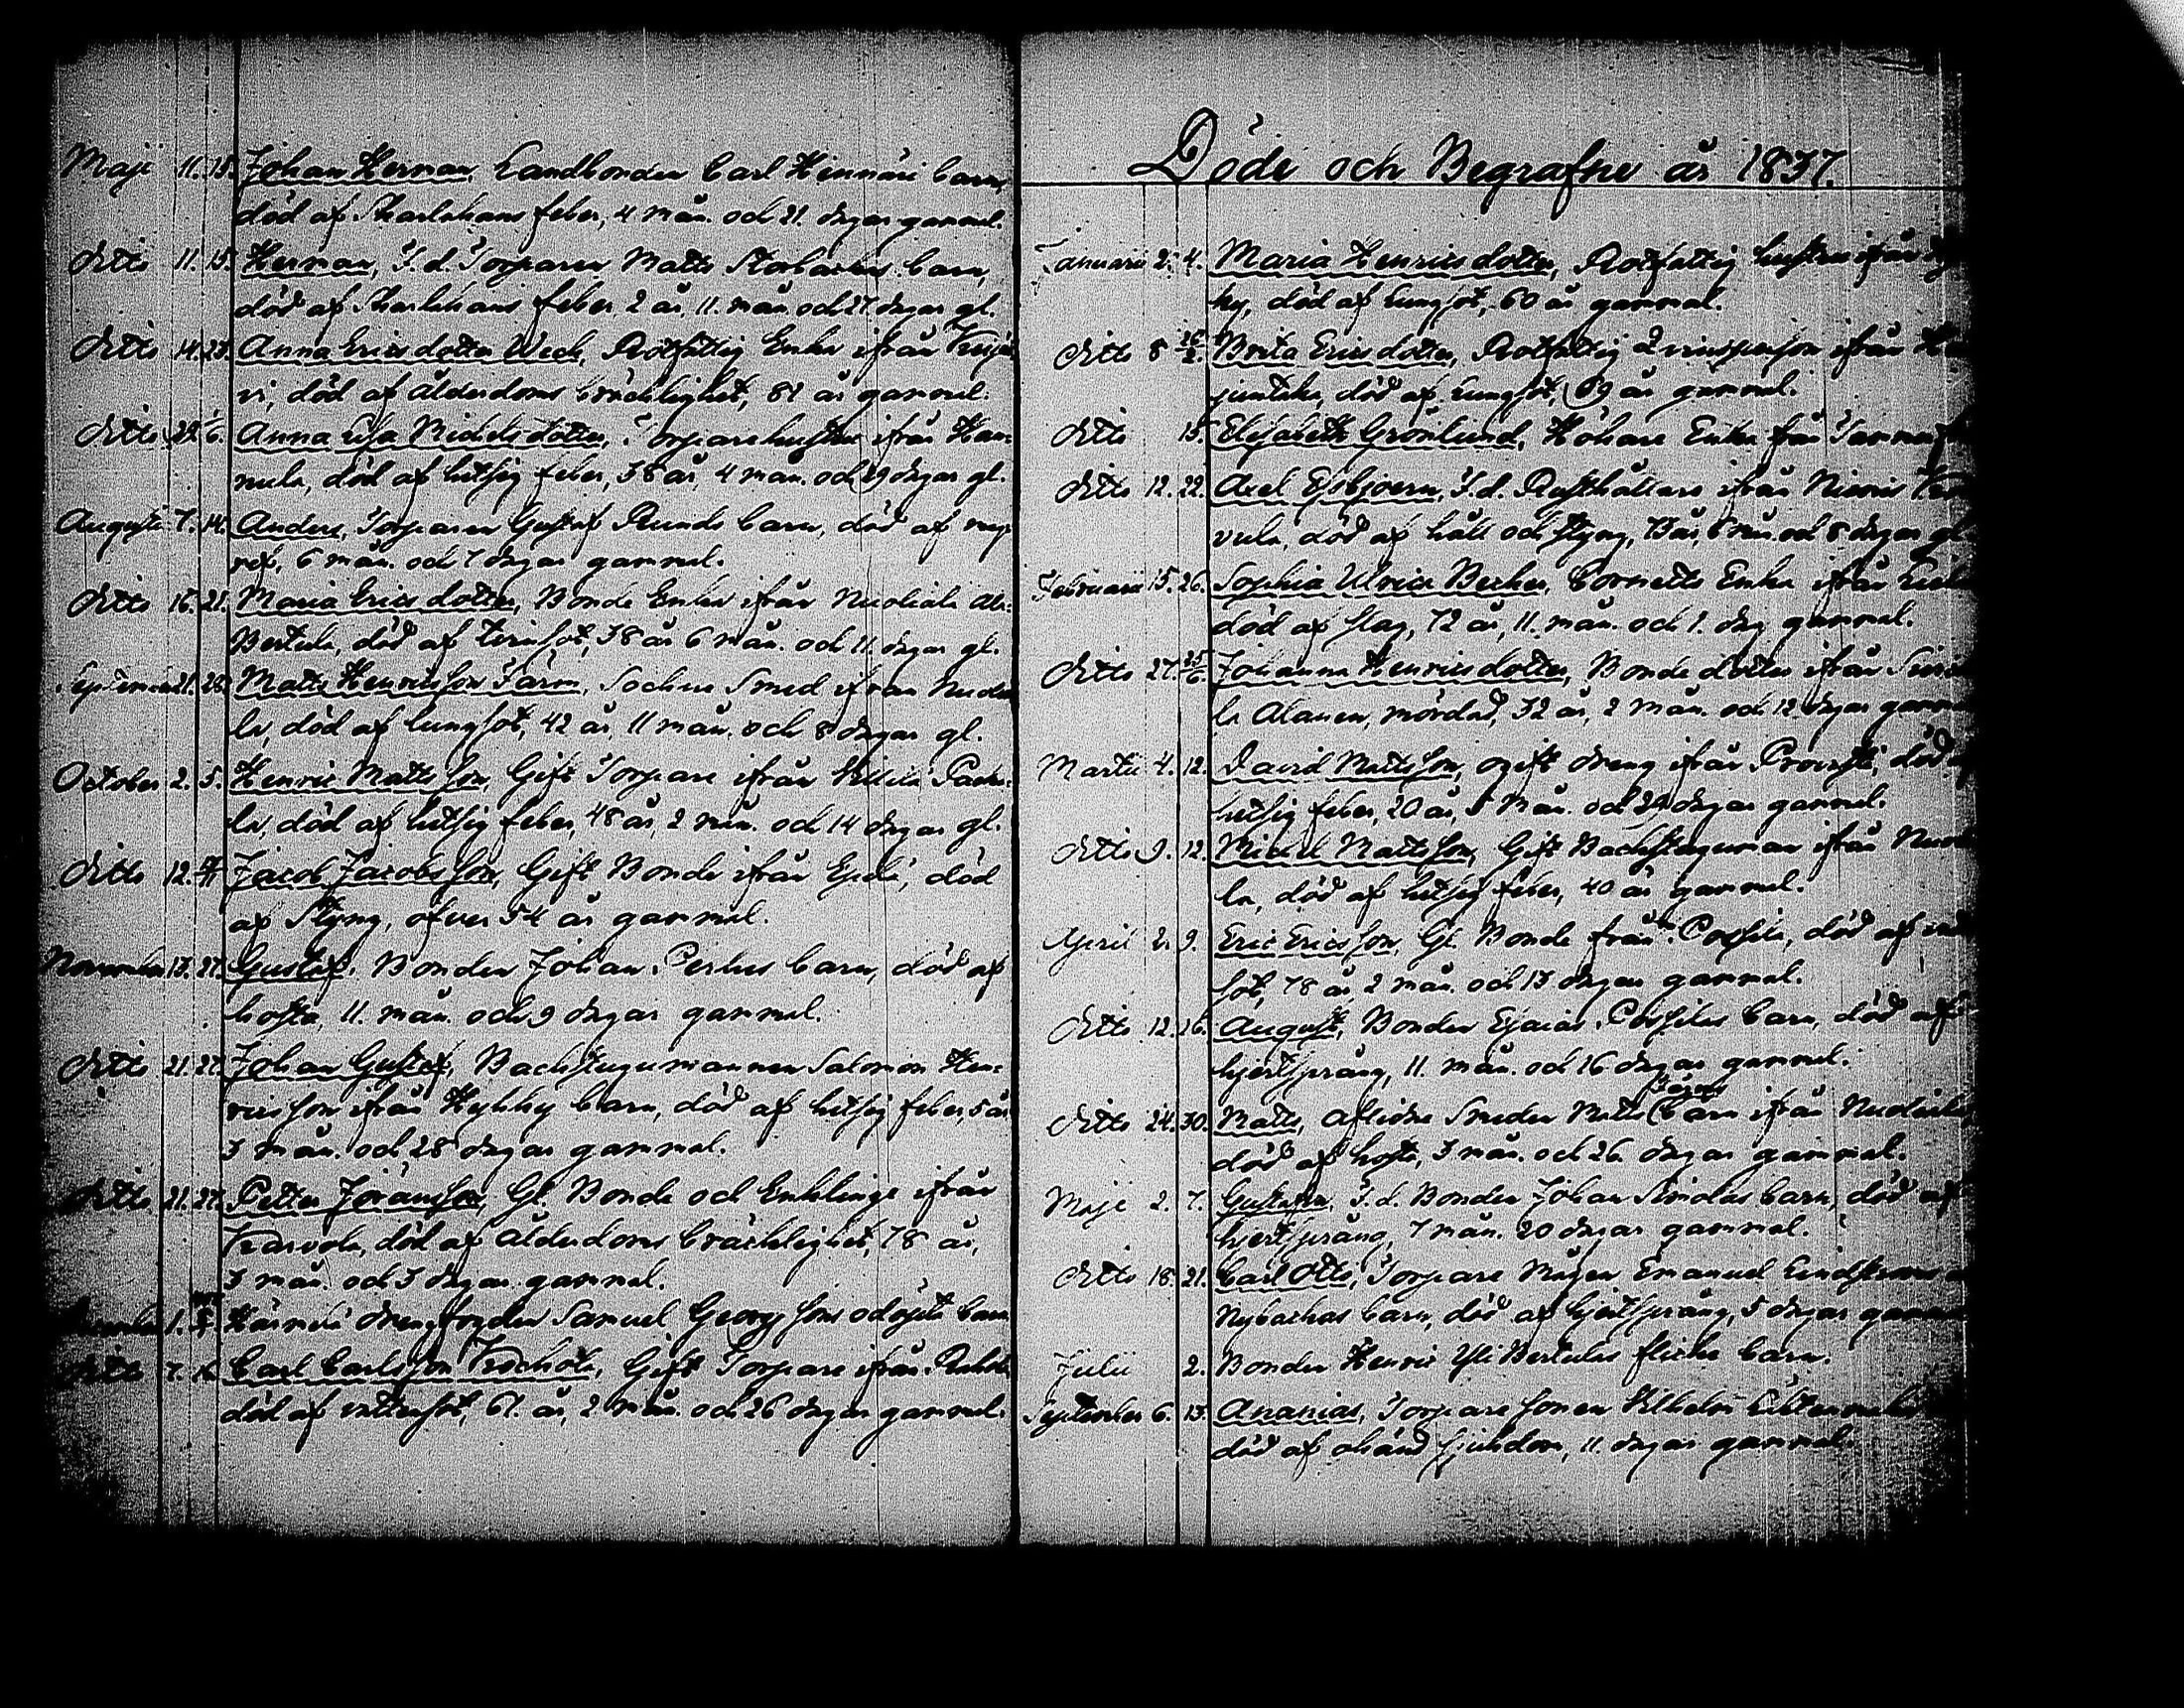 Maji 11. 15. Johan Herman, Landbonden Carl Heinnäri barn,
död af Skarlakans feber, 4 mån. och 21. dagar gammal.
ditto 11. 15. Herman, T. d. Torparen Matts Storbackas barn,
död af Skarlakans feber 2 år, 11. mån. och 27. dagar gl.
ditto 14. 23. Anna Ericsdotter Weck, Rotfattig Enka ifrån
vi, död af ålderdoms bräcklighet, 87 år gammal.
ditto 29. 6. Anna Lisa Michelsdotter, Torpare hustru ifrån Han-
nula, död af hetsig feber, 38 år, 4 mån. och 29 dagar gl.
Augusti 7. 14. Anders, Torparen Gustaf Runds barn, död af
ref, 6 mån. och 7 dagar gammal.
ditto 16. 21. Maria Ericsdotter, Bonde Enka ifrån Nuoliala
Bertula, död af 38 år 6 mån. och 11. dagar gl.
September 21. 28. Matts Henricsson Färm, Sockne Smed ifrån
la, död af lungsot, 42 år, 11 mån. och 8 dagar gl.
October 2. 5. Henric Mattsson, Gift Torpare ifrån
la, död af hetsig feber, 48 år, 2 mån. och 14 dagar gl.
ditto 12. Jacob Jacobsson, Gift Bonde ifrån död
af Styng, öfver 54 år gammal.
November 13. 27. Gustaf, Bonden Johan Perhus barn, död af
hosta, 11. mån. och 9 dagar gammal.
ditto 21. 27. Johan Gustaf, Backstugumannen Salomon Hen-
ricsson ifrån Hyhky barn, död af hetsig feber, 5 år
3 mån. och 28 dagar gammal.
ditto 21. 27. Petter Göransson, Gl. Bonde och Enkling ifrån
död af ålderdoms bräcklighet, 78 år,
3 mån. och 3 dagar gammal.
1. Härmälä drengfogden Samuel Georgssons odöpta barn
ditto 7. Carl Carlsson Gift Torpare ifrån
död af 61. år, 2 mån. och 26 dagar gammal.
Döde och Begrafne år 1837.
Januarii 2. 4. Maria Henricsdotter, Rotfattig hustru ifrån
ky, död af lungsot, 60 år gammal.
ditto 8 Brita Ericsdotter, Rotfattig qvinsperson ifrån
död af lungsot, 69 år gammal.
ditto 15. Elisabeth Grönlund, Hökare Enka från
ditto 12. 22. Axel Esbjoern, T. d. Rusthållare ifrån
vula, död af håll och styng, 6 mån. och 8 dagar gl.
Februarii 15. 26. Sophia Ulrica Becker, Cornetts Enka ifrån
död af slag, 72 år, 11. mån. och 1. dag gammal.
ditto 27. Johanna Henricsdotter, Bonde dotter ifrån
la Alanen, mördad, 32 år, 2 mån. och 12 dagar
Martii 4. 12. David Mattsson, ogift dreng ifrån Provasti, död
hetsig feber, 20 år, 5 mån. och 29 dagar gammal.
ditto 9. 12. Michel Mattsson, Gift Backstuguman ifrån
la, död af hetsig feber, 40 år gammal.
April 2. 9. Eric Ericsson, Gl. Bonde från Pospila, död af
sot, 78 år 2 mån. och 13 dagar gammal.
ditto 12. 16. August, Bonden Esaias Pospilas barn, död af
hjertsprång, 11. mån. och 16 dagar gammal.
ditto 24. 30. Matts, Aflidne Smeden Matts Färms barn ifrån
död af hosta, 3 mån. och 26. dagar gammal.
Maji 2. 7. Gustafva, T. d. Bonden Johan barn, död af
hjertsprång, 7 mån. 20 dagar gammal.
ditto 18. 21. Carl Otto, Torpare Mågen Emanuel Lindström
Nybackas barn, död af hjertsprång, 5 dagar
Julii 2. Bonden Henric Yli Bertulas flicke barn.
September 6. 13. Ananias, Torpare sonen Wilhelm
död af okänd sjukdom, 11. dagar gammal.